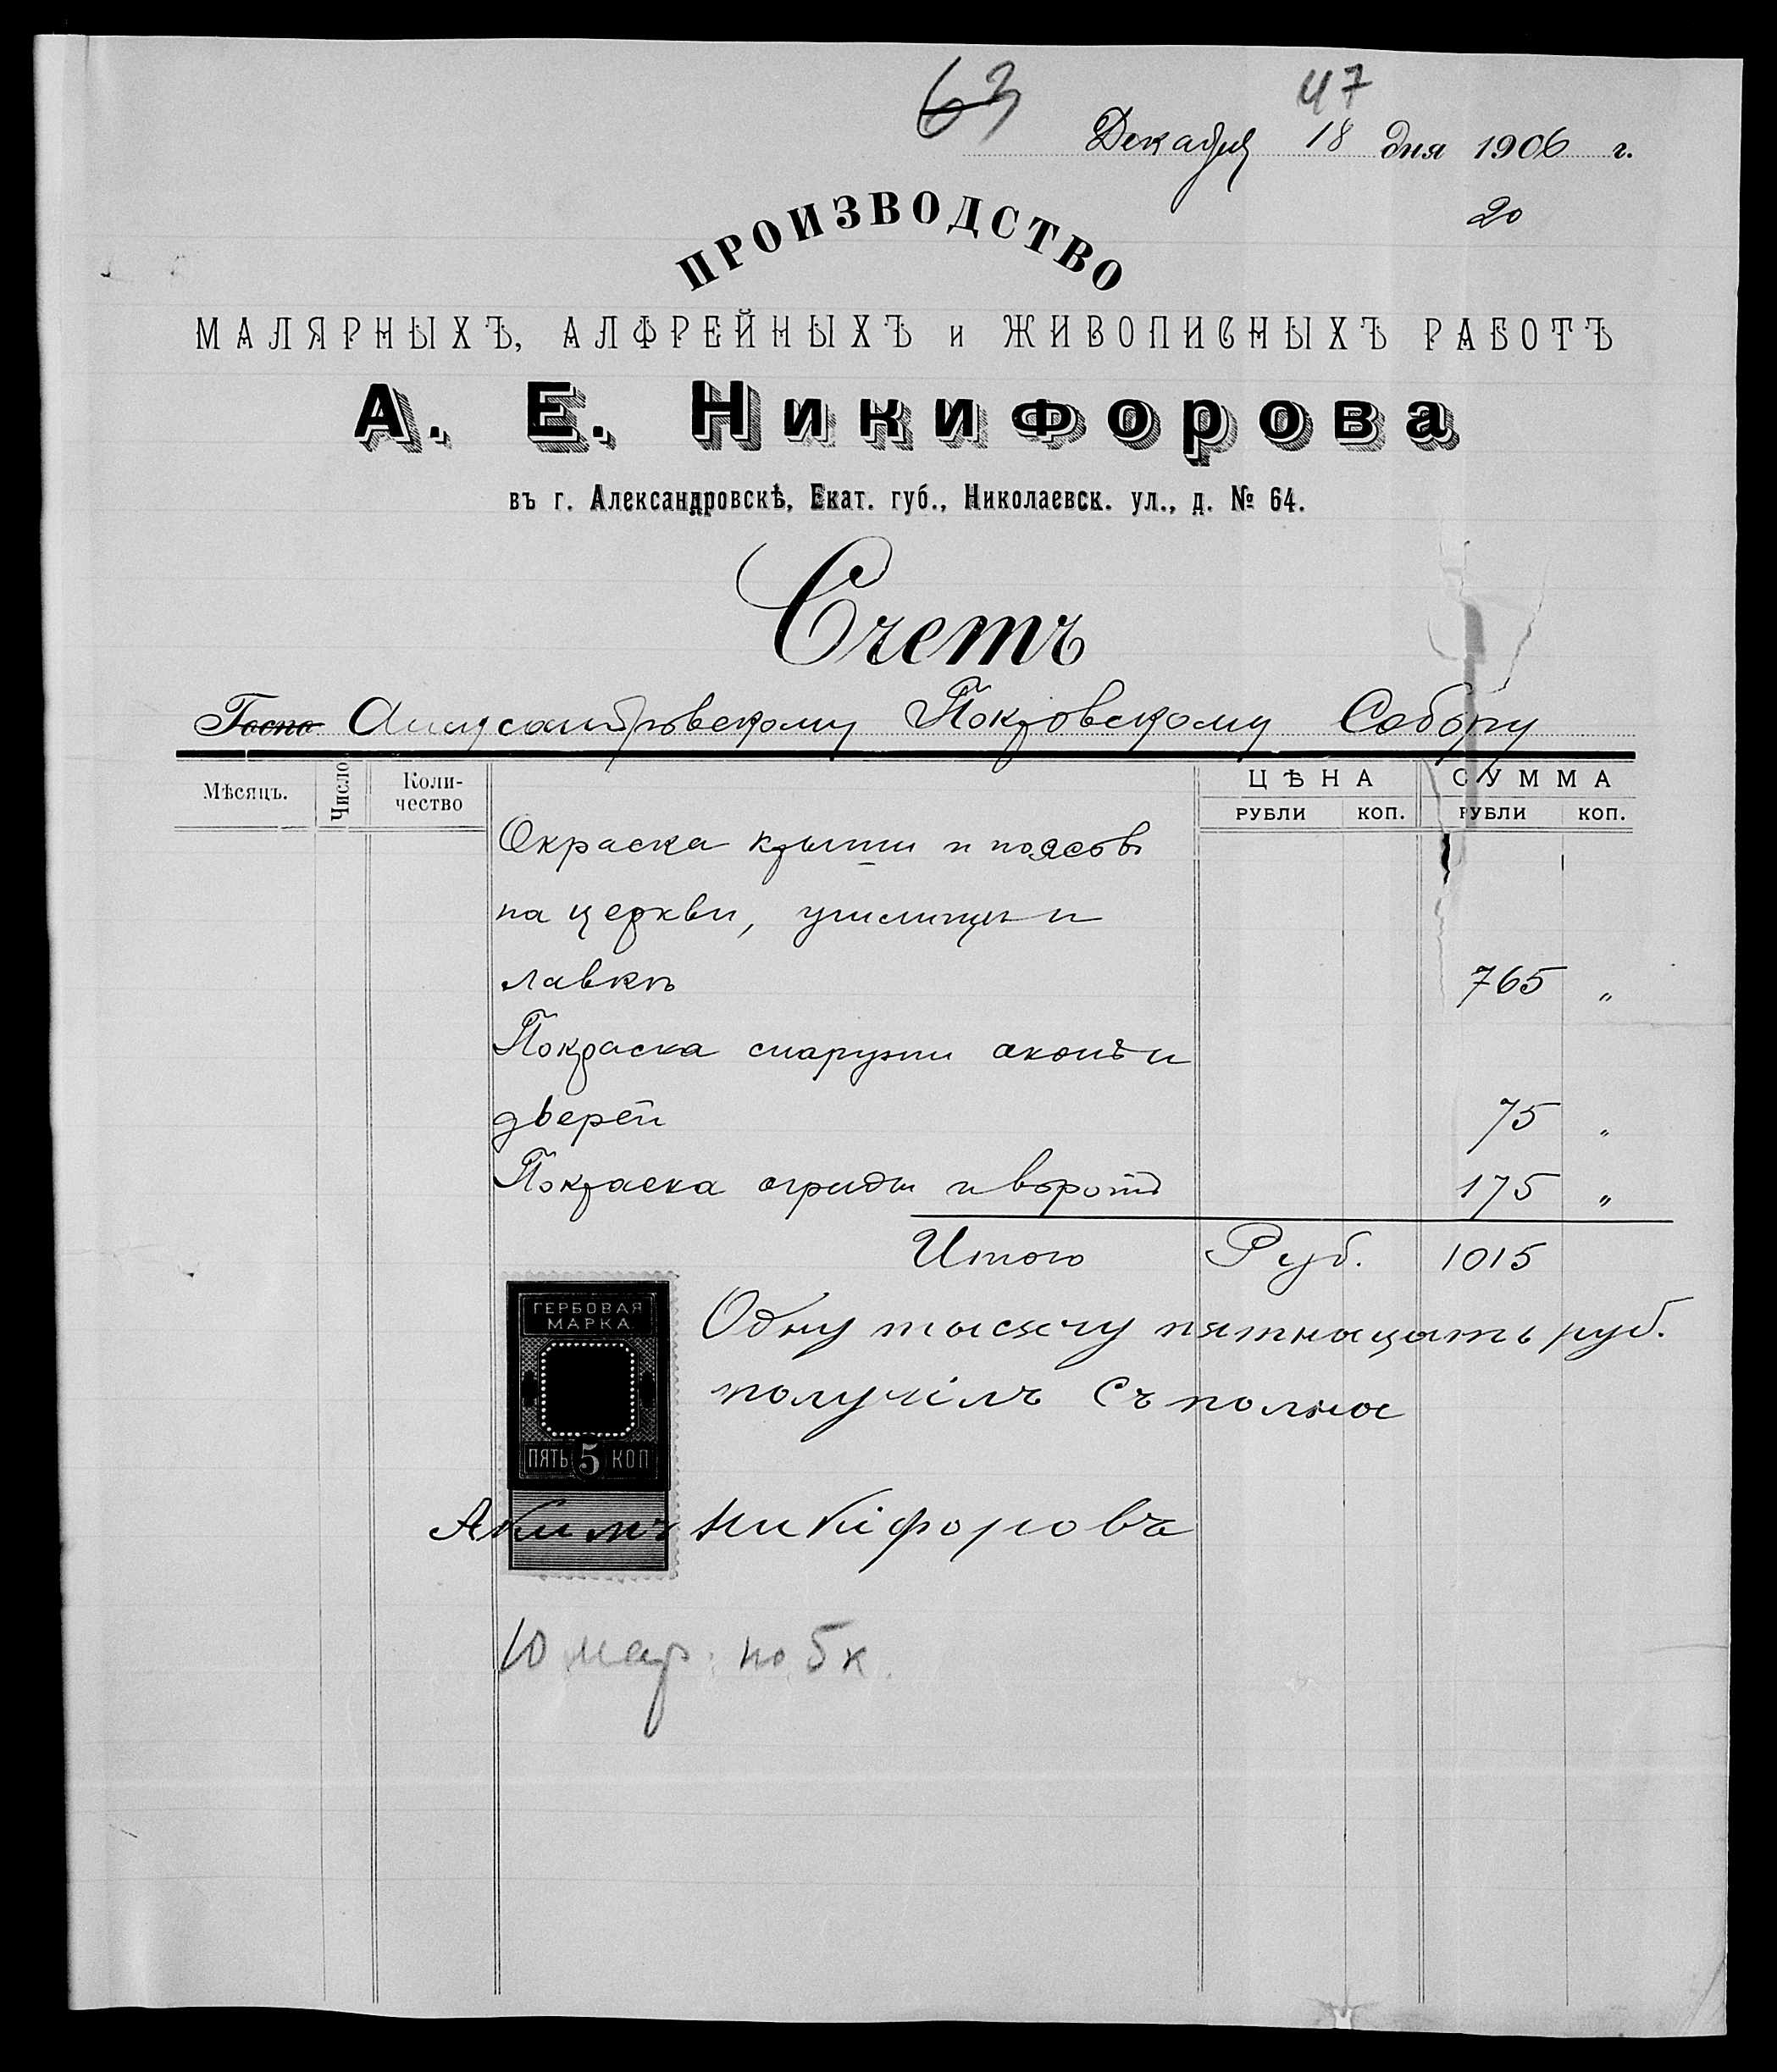 63
47
Декабря 18 дня 1906 г.
20
ПРОИЗВОДСТВО
МАЛЯРНЫХЪ, АЛФРЕЙНЫХЪ и ЖИВОПИСНЫХЪ РАБОТЪ
А. Е. Никифорова
въ г. Александровскѣ, Екат. губ., Николаевск. ул., д. № 64.
Счетъ
Госпо Александровскому Покровскому Собору
Мѣсяцъ. Число Коли-чество ЦѢНА СУММА
РУБЛИ КОП. РУБЛИ КОП.
Окраска крыши и поясовъ
на церкви, училищи и
лавкѣ 765 "
Покраска снаружи оконъ и
дверей 75 "
Покраска ограды и воротъ 175 "
Итого Руб. 1015
ГЕРБОВАЯ
МАРКА
Одну тысячу пятнацать руб.
получілъ съполное
ПЯТЬ 5 КОП
Акимъ Никіфоровъ
10 мар. по 5 к.